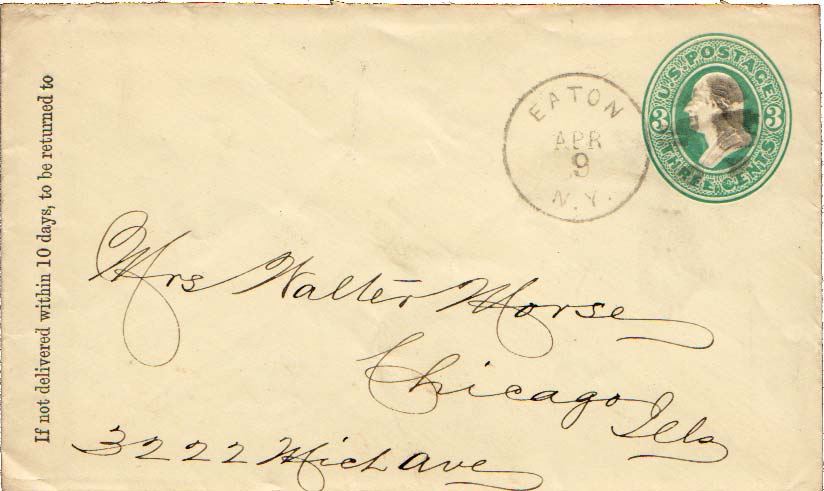 If not delivered within 10 days, to be returned to
EATON
APR
9
N.Y.
U.S. POSTAGE
3 3
THREE CENTS
Mrs Walter Morse
Chicago Ills
3222 Mich ave